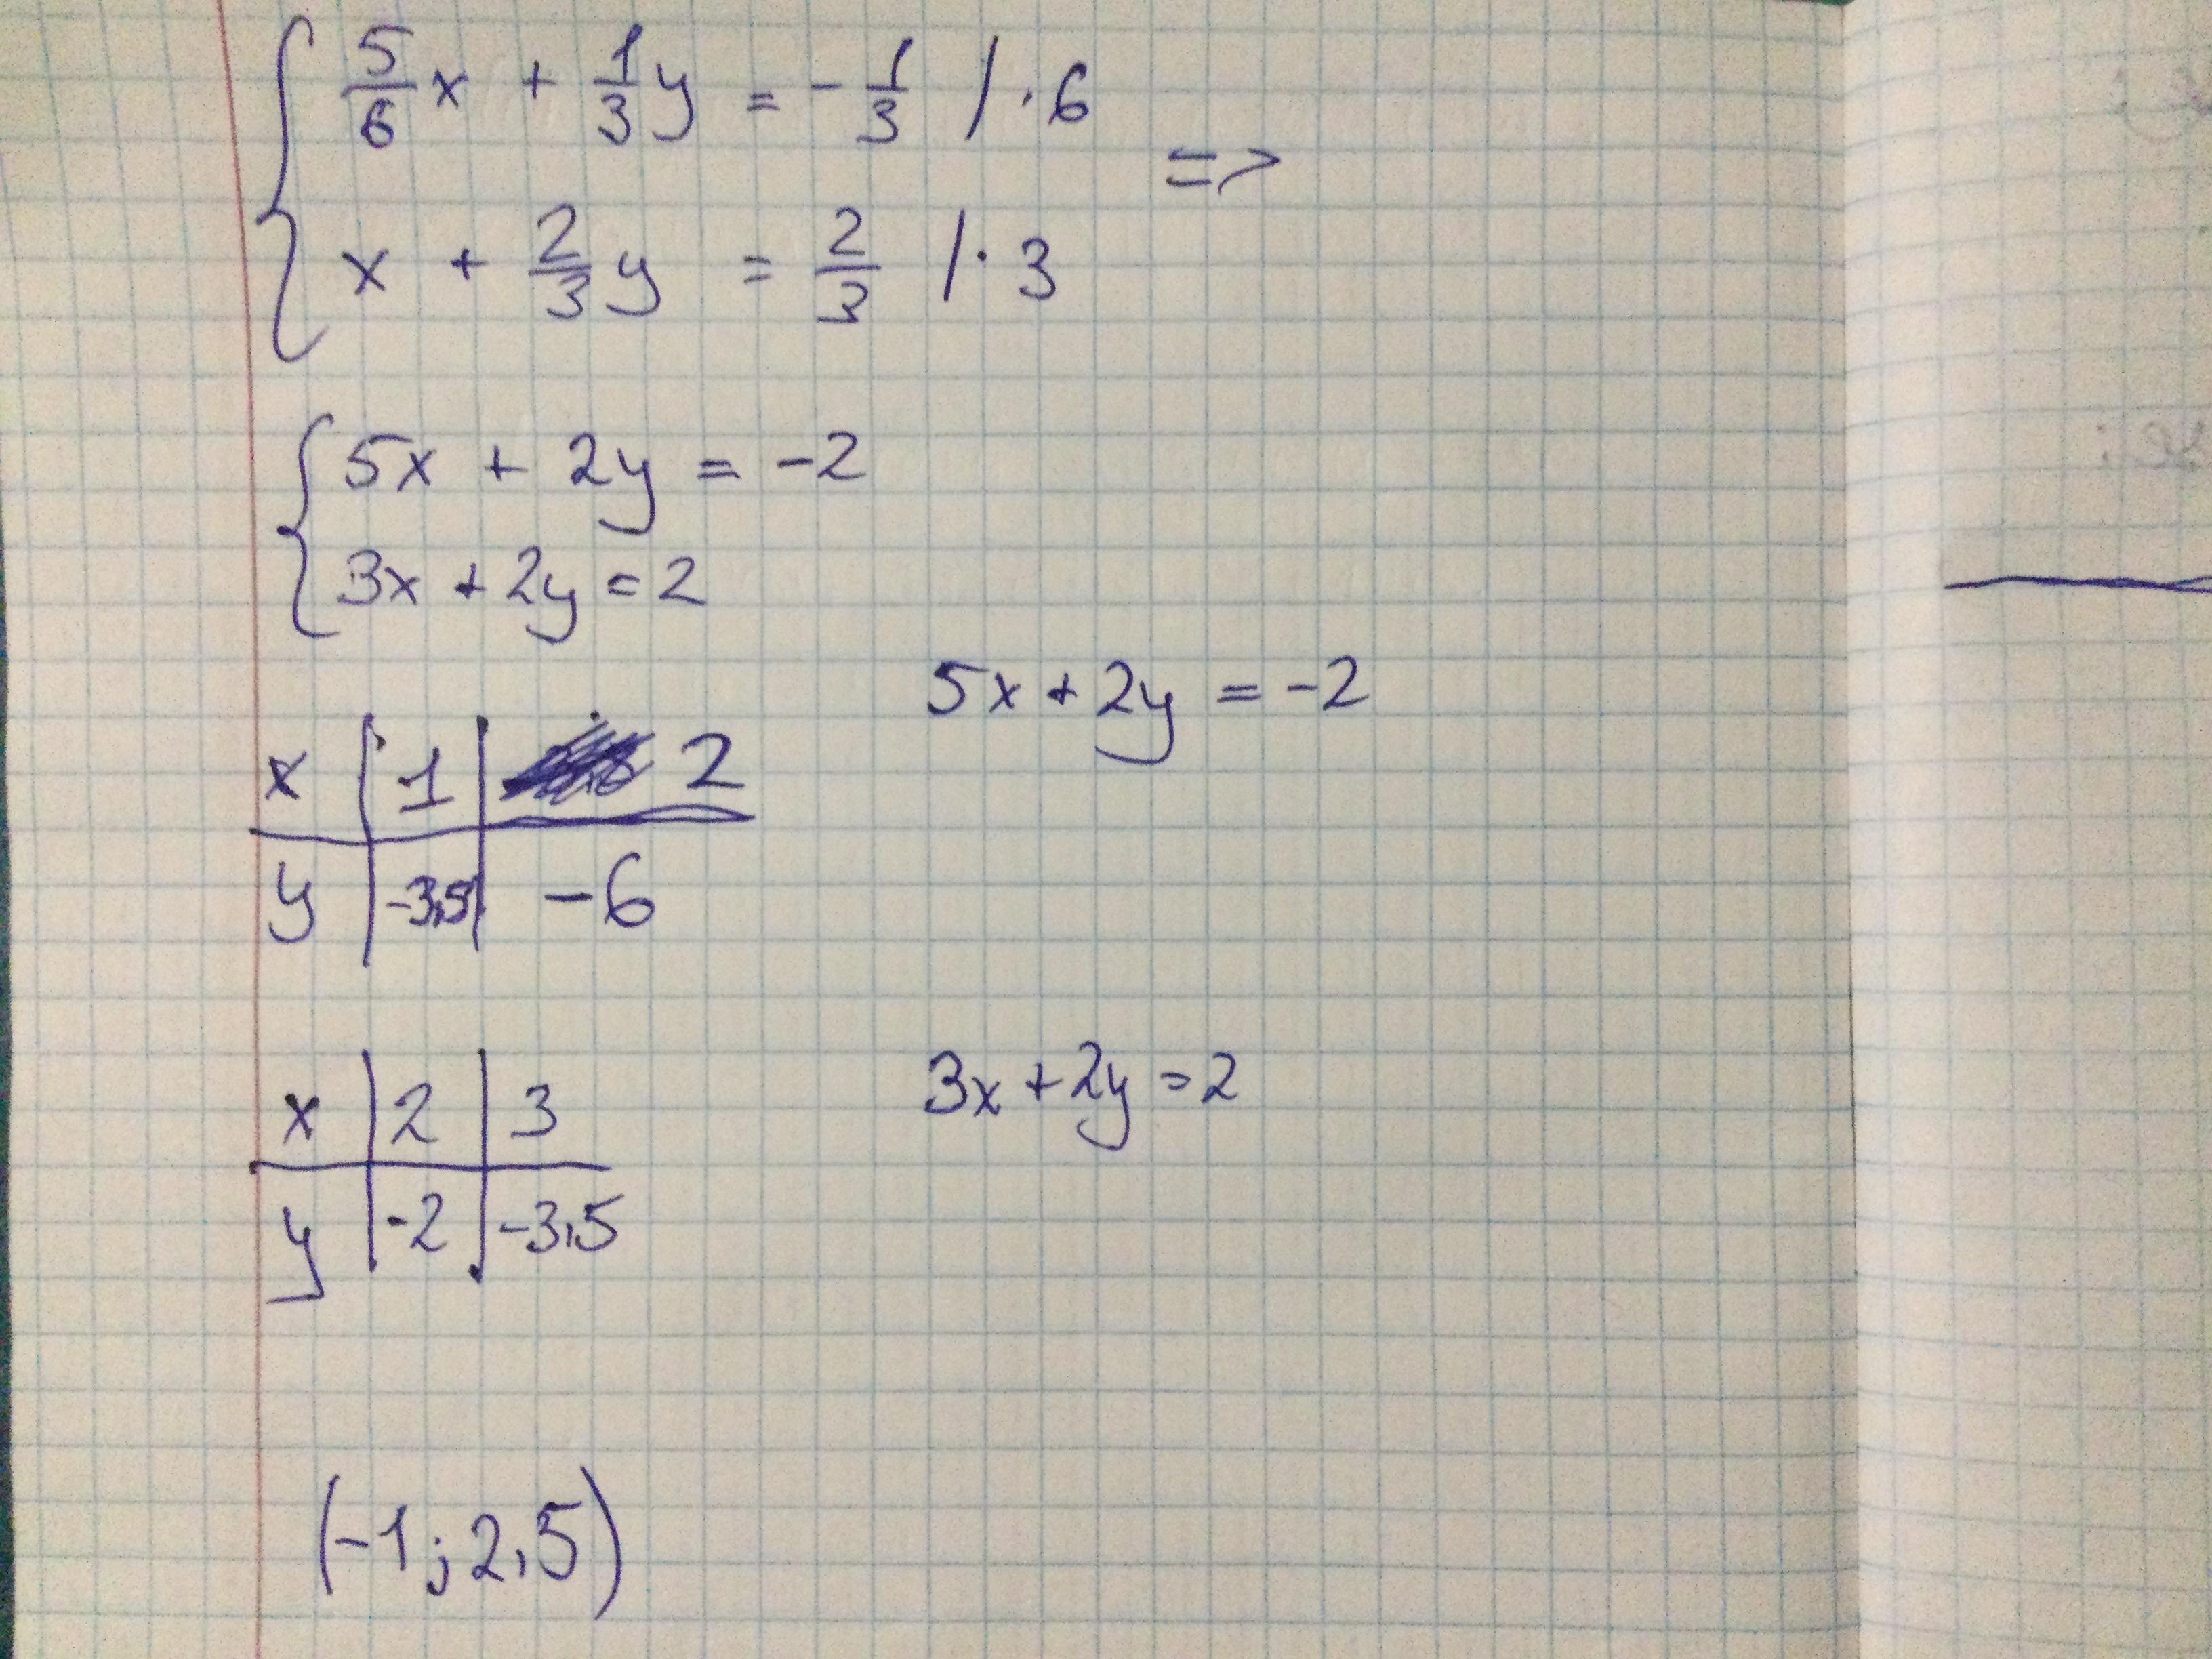 5/6 x + 1/3 y = -1/3 /·6
=>
x + 2/3 y = 2/3 /·3
5x + 2y = -2
3x + 2y = 2
5x + 2y = -2
x | 1 | 2
y | -3,5 | -6
3x + 2y = 2
x | 2 | 3
y | -2 | -3,5
(-1; 2,5)